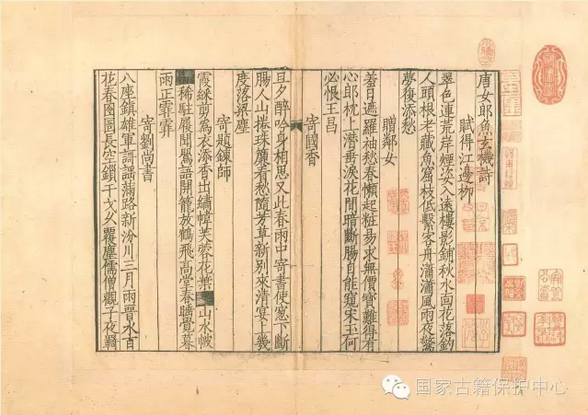 唐女郎魚玄機詩
賦得江邊柳
翠色連荒岸煙姿入遠樓影鋪秋水面花落釣
人頭根老藏魚窟枝低繫客舟瀟瀟風雨夜驚
夢復添愁
贈鄰女
羞日遮羅袖愁春懶起粧易求無價寶難得有
心郎枕上潛垂淚花間暗斷腸自能窺宋玉何
必恨王昌
寄國香
旦夕醉吟身相思又此春雨中寄書使窓下斷
腸人山捲珠簾看愁隨芳草新別來清宴上幾
度落梁塵
寄題鍊師
霞綵剪為衣添香出繡幃芙蓉花葉山水帔
稀駐履聞鶯語開籠放鶴飛高堂春睡覺暮
雨正霏霏
寄劉尚書
八座鎮雄軍歌謠滿路新汾川三月雨晉水百
花春囹圄長空鎖干戈久覆塵儒僧觀子夜羈
国家古籍保护中心